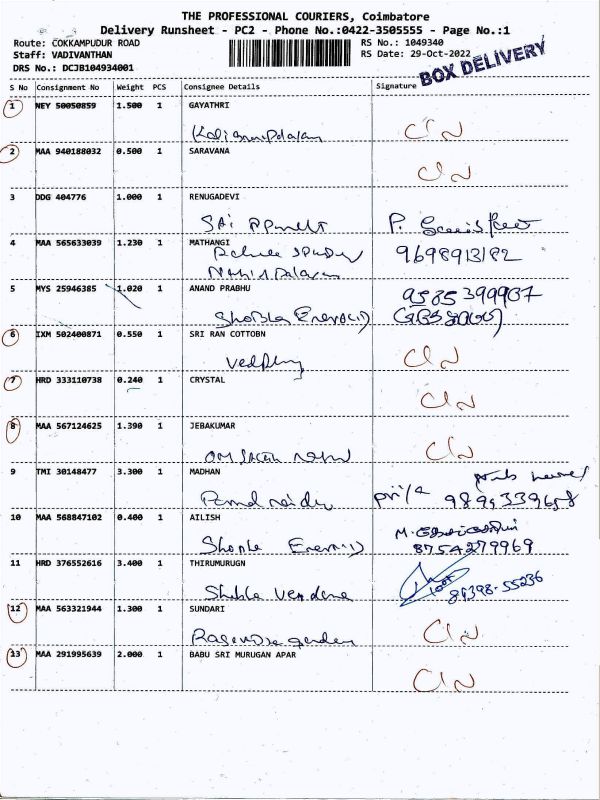 THE PROFESSIONAL COURIERS, Coimbatore
Delivery Runsheet - PC2 - Phone No.:0422-3505555 - Page No.:1
Route: COKKAMPUDUR ROAD RS No.: 1049340
Staff: VADIVANTHAN RS Date: 29-Oct-2022
DRS No.: DCJB104934001
BOX DELIVERY
S No Consignment No Weight PCS Consignee Details Signature
1 NEY 50050859 1.500 1 GAYATHRI
CIN
2 MAA 940188032 0.500 1 SARAVANA
CIN
3 DDG 404776 1.000 1 RENUGADEVI
SAi
4 MAA 565633039 1.230 1 MATHANGI
9698913182
5 MYS 25946385 1.020 1 ANAND PRABHU
9585399907
Shobla
6 IXM 502400871 0.550 1 SRI RAN COTTOBN
CIN
7 HRD 333110738 0.240 1 CRYSTAL
CIN
8 MAA 567124625 1.390 1 JEBAKUMAR
OM CIN
9 TMI 30148477 3.300 1 MADHAN
priya 9894339658
10 MAA 568847102 0.400 1 AILISH
8754279969
11 HRD 376552616 3.400 1 THIRUMURUGN
89398-55236
12 MAA 563321944 1.300 1 SUNDARI
garden CIN
13 MAA 291995639 2.000 1 BABU SRI MURUGAN APAR
CIN